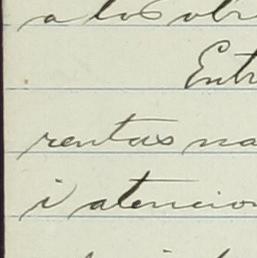 a los obr
Entr
rentas na
i atencion